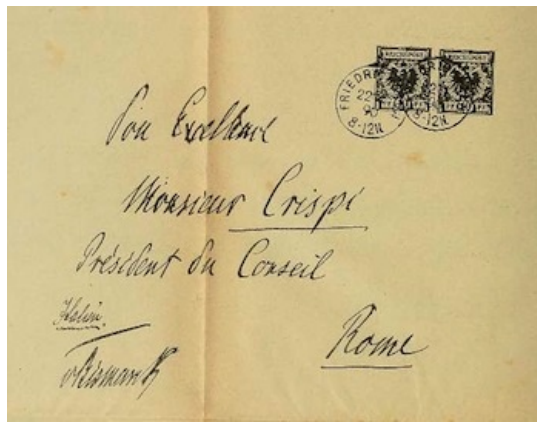 REICHSPOST REICHSPOST
FRIEDR
22
90
8-12N 8-12N
Son Excellence
Monsieur Crispi
Président du Conseil
Italien
Rome
vBismarck